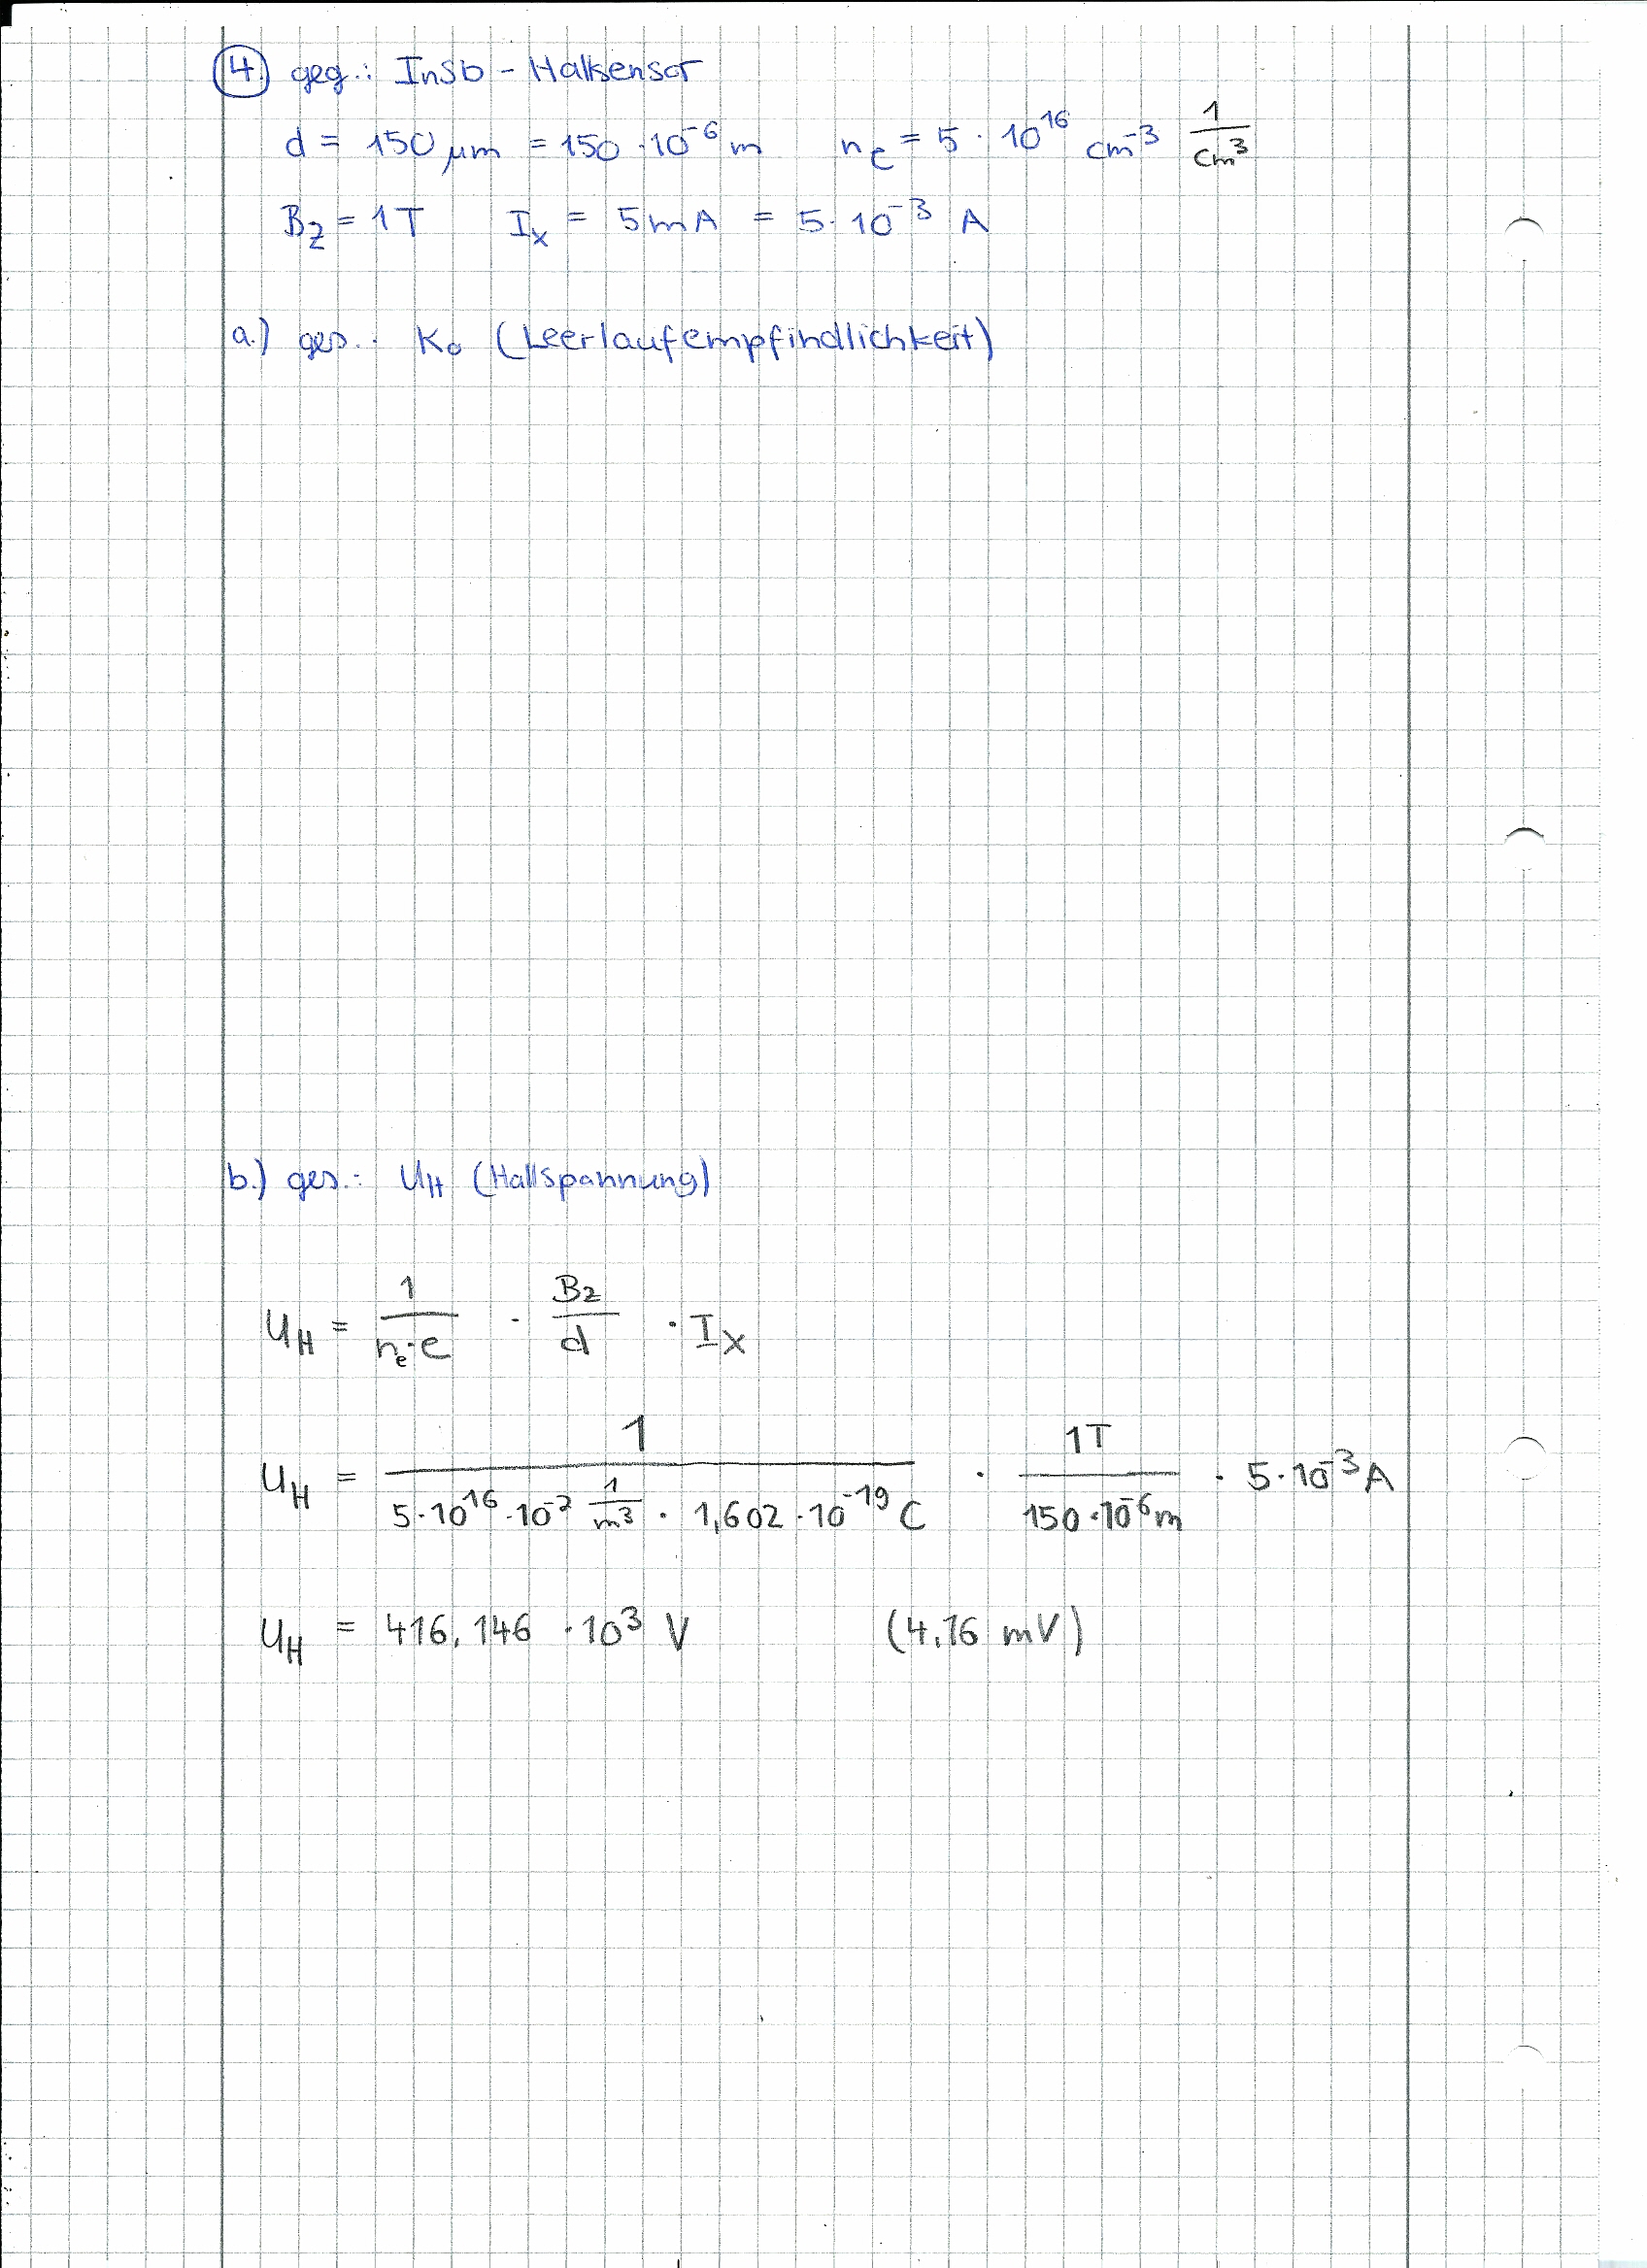 4.) geg.: InSb - Hallsensor
d = 150 µm = 150 · 10⁻⁶ m   nₑ = 5 · 10¹⁶ cm⁻³ 1/cm³
B_z = 1T   Iₓ = 5mA = 5 · 10⁻³ A
a.) ges.: K₀ (Leerlaufempfindlichkeit)
b.) ges.: U_H (Hallspannung)
U_H = 1/(nₑ · e) · B_z/d · Iₓ
U_H = 1/(5 · 10¹⁶ · 10⁻² 1/m³ · 1,602 · 10⁻¹⁹ C) · 1T/(150 · 10⁻⁶ m) · 5 · 10⁻³ A
U_H = 416,146 · 10³ V   (4,16 mV)